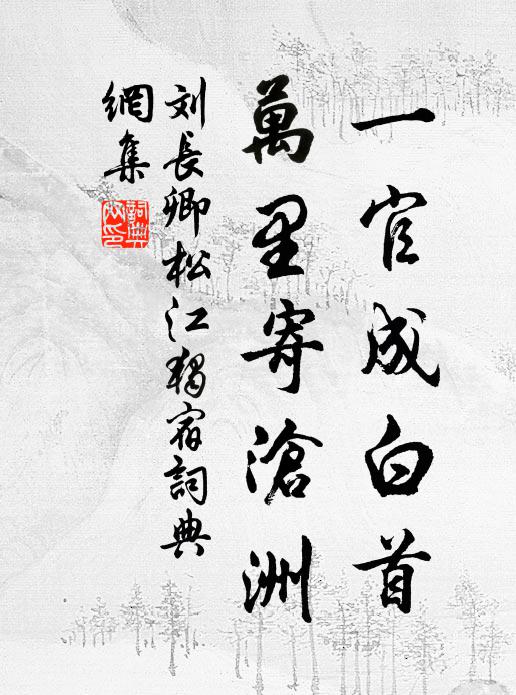 一官成白首
萬里寄滄洲
刘長卿松江獨宿詞典
網集
詞典網印